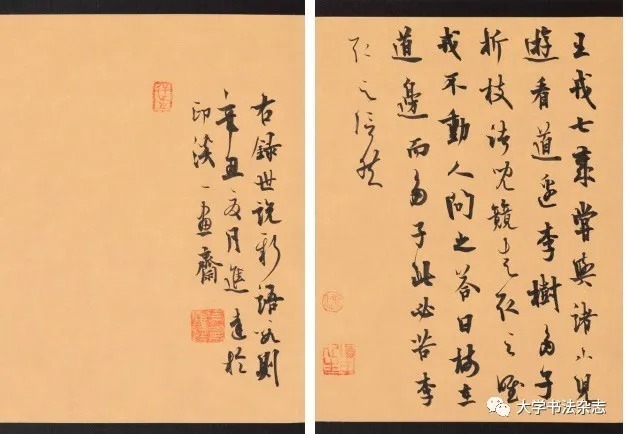 王戎七歲嘗與諸小兒
遊看道邊李樹多子
折枝諸兒競走取之唯
戎不動人問之答曰樹在
道邊而多子此必苦李
取之信然
右錄世說新語數則
辛丑夏月進達於
一畫齋
大学书法杂志